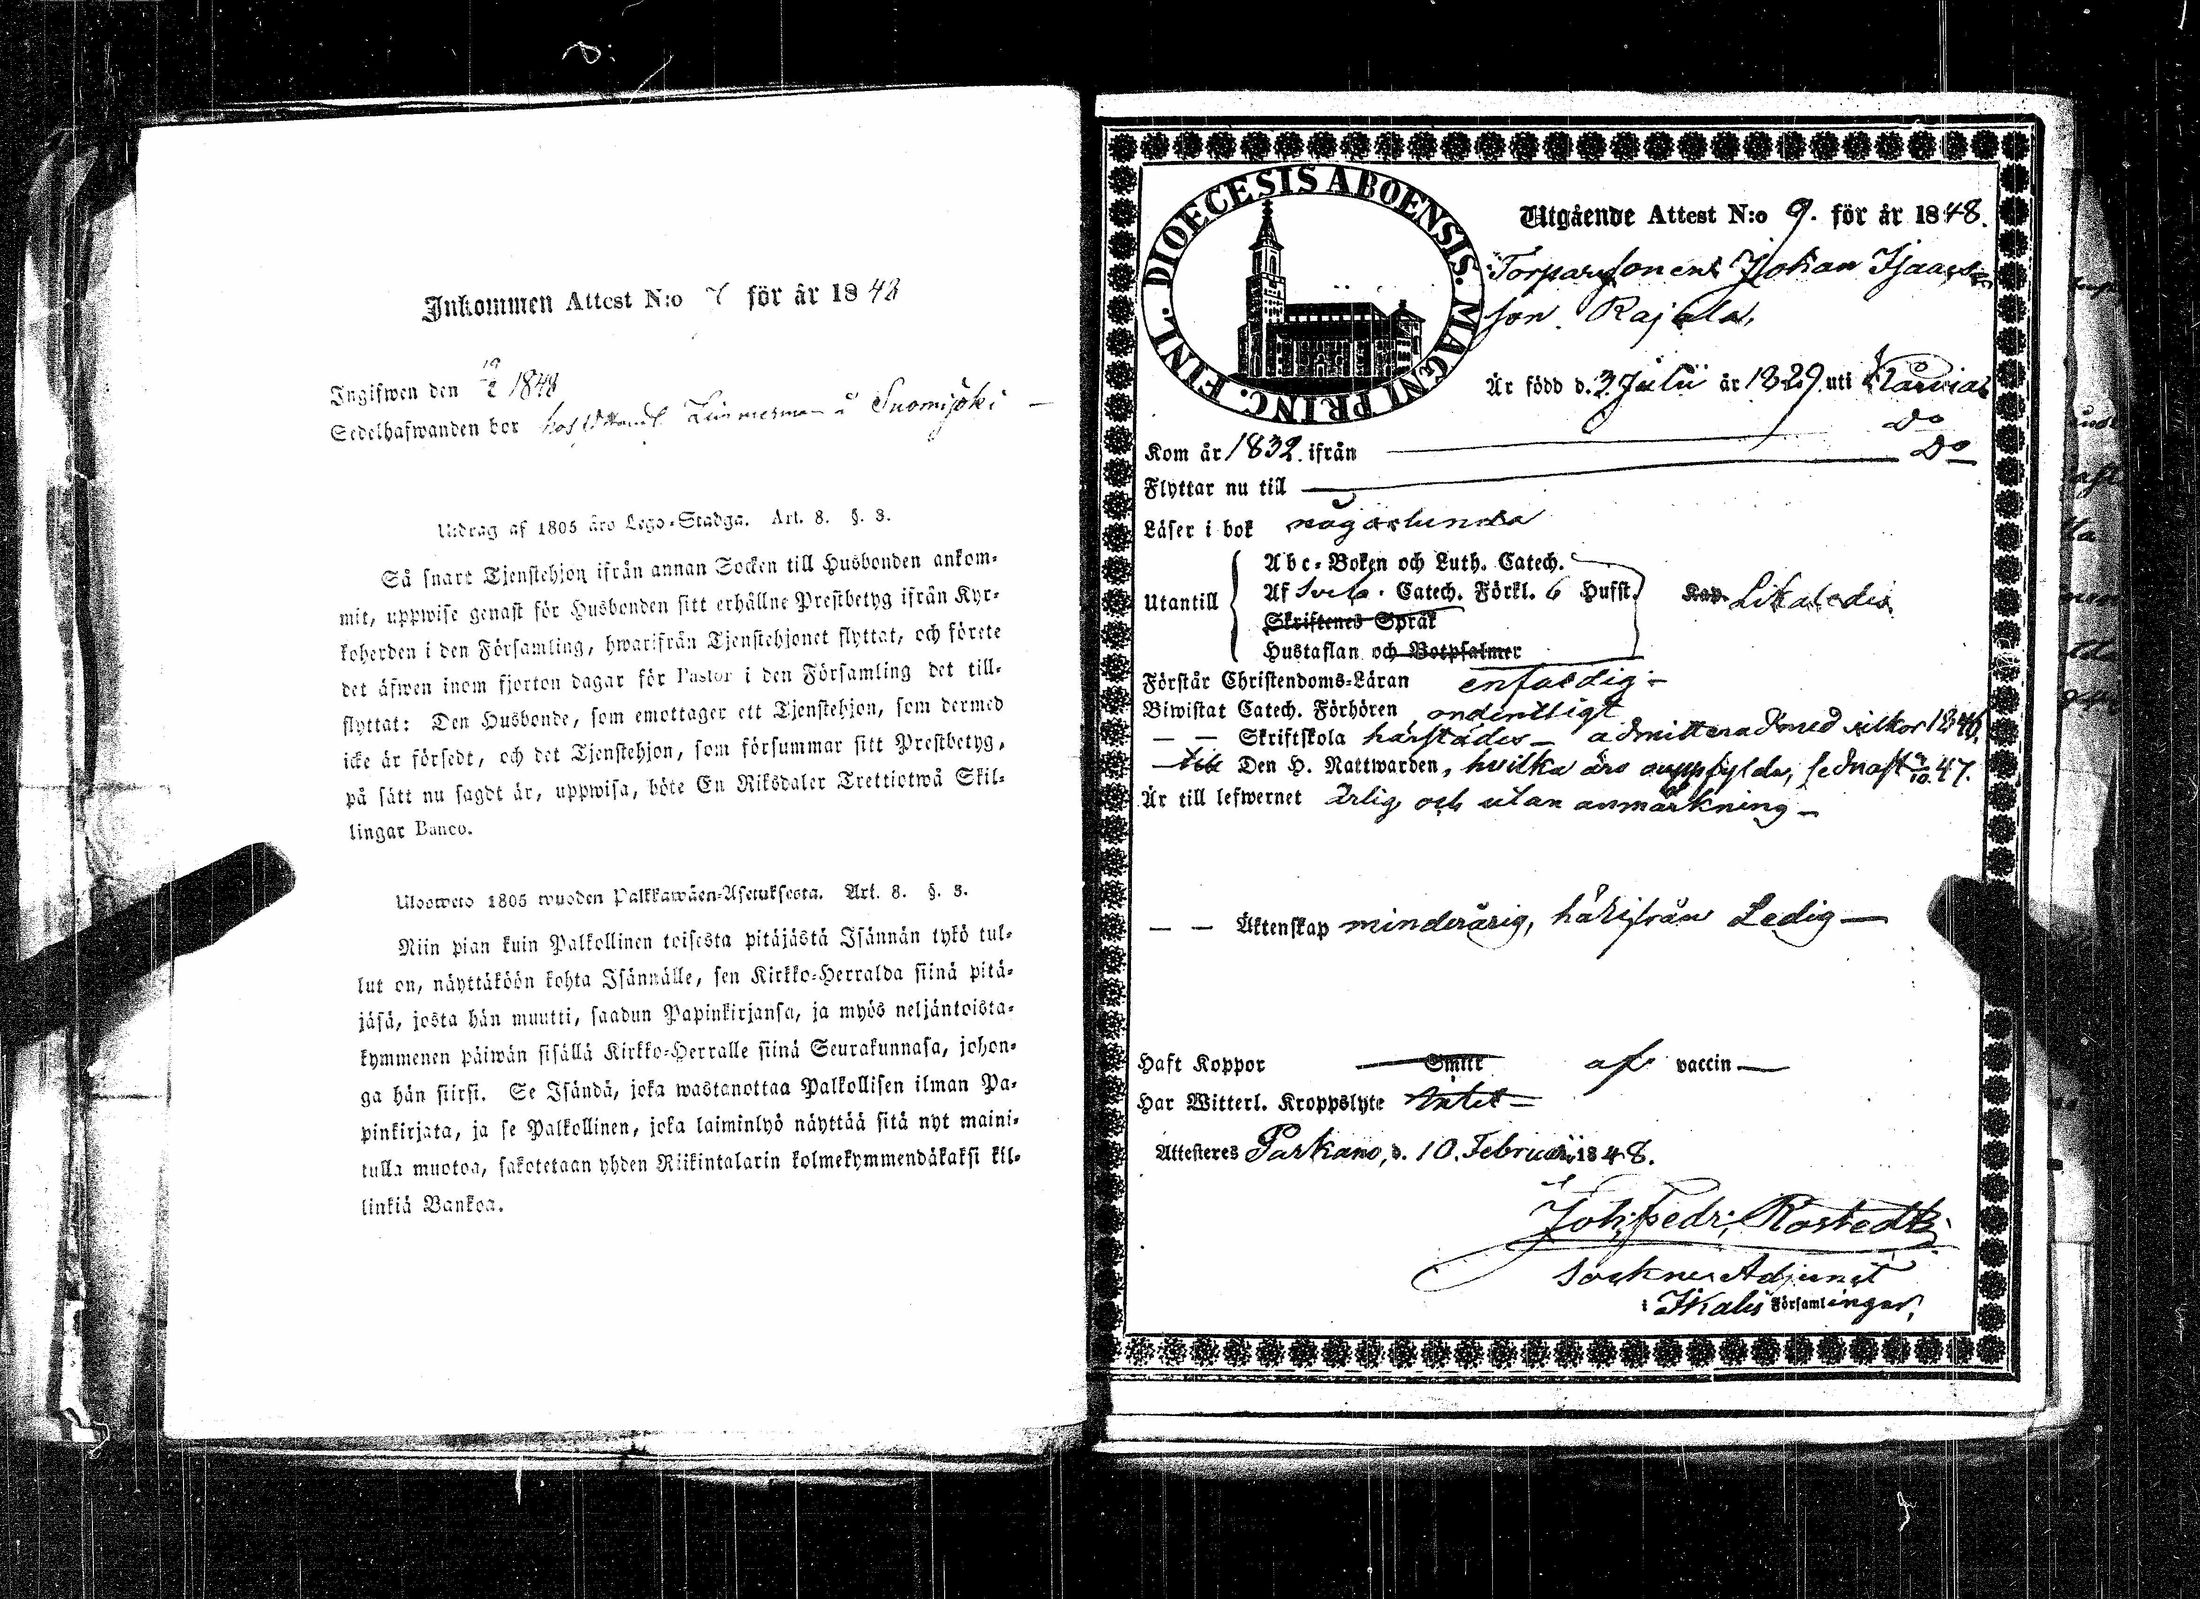 Inkommen Attest N:o 7 för år 1848
Ingifwen den 19/2 1848
Sedelhafwanden bor hos Zimmerman i Suomijoki
Utdrag af 1805 års Lego-Stadga. Art. 8. §. 3.
Så snart Tjenstehjon ifrån annan Socken till Husbonden ankom-
mit, uppwise genast för Husbonden sitt erhållne Prestbetyg ifrån Kyr-
koherden i den Församling, hwarifrån Tjenstehjonet flyttat, och förete
det äfwen inom fjorton dagar för Pastor i den Församling det till-
flyttat: Den Husbonde, som emottager ett Tjenstehjon, som dermed
icke är försedt, och det Tjenstehjon, som försummar sitt Prestbetyg,
på sätt nu sagdt är, uppwisa, böte En Riksdaler Trettiotwå Skil-
lingar Banco.
Ulosweto 1805 wuoden Palkkawäen-Asetuksesta. Art. 8. §. 3.
Niin pian kuin Palkollinen toisesta pitäjästä Isännän tykö tul-
lut on, näyttäköön kohta Isännälle, sen Kirkko-Herralda siinä pitä-
jäsä, josta hän muutti, saadun Papinkirjansa, ja myös neljäntoista-
kymmenen päiwän sisällä Kirkko-Herralle siinä Seurakunnasa, johon-
ga hän siirsi. Se Isändä, joka wastanottaa Palkollisen ilman Pa-
pinkirjata, ja se Palkollinen, joka laiminlyö näyttää sitä nyt maini-
tulla muotoa, sakotetaan yhden Riikintalarin kolmekymmendäkaksi kil-
linkiä Bankoa.
DIOECESIS ABOENSIS. MAGNI PRINC. FINL.
Utgående Attest N:o 9. för år 1848.
Torparesonen Johan Isaacs-
son Rajala,
Är född d. 3 Julii år 1829. uti Karvia
Kom år 1832. ifrån do
Flyttar nu till do
Läser i bok någorlunda
Abc-Boken och Luth. Catech.
Utantill Af Sveb. Catech. Förkl. 6 Hufst. Kap. Likaledes
Skriftenes Språk
Hustaflan och Botpsalmer
Förstår Christendoms-Läran enfaldig
Biwistat Catech. Förhören ordentligt
— — Skriftskola härstädes — admitterad med vilkor 1846,
Den H. Nattwarden, hvilka äro uppfylda, sednast 47.
Är till lefwernet ärlig och utan anmärkning —
— — Äktenskap minderårig, härifrån Ledig —
Haft Koppor Smitt af vaccin —
Har Witterl. Kroppslyte Intet —
Attesteres Parkano, d. 10. Februarii 1848.
Joh. Fedr. Rostedt
Sockne Adjunct
i Ikalis Församlingar,